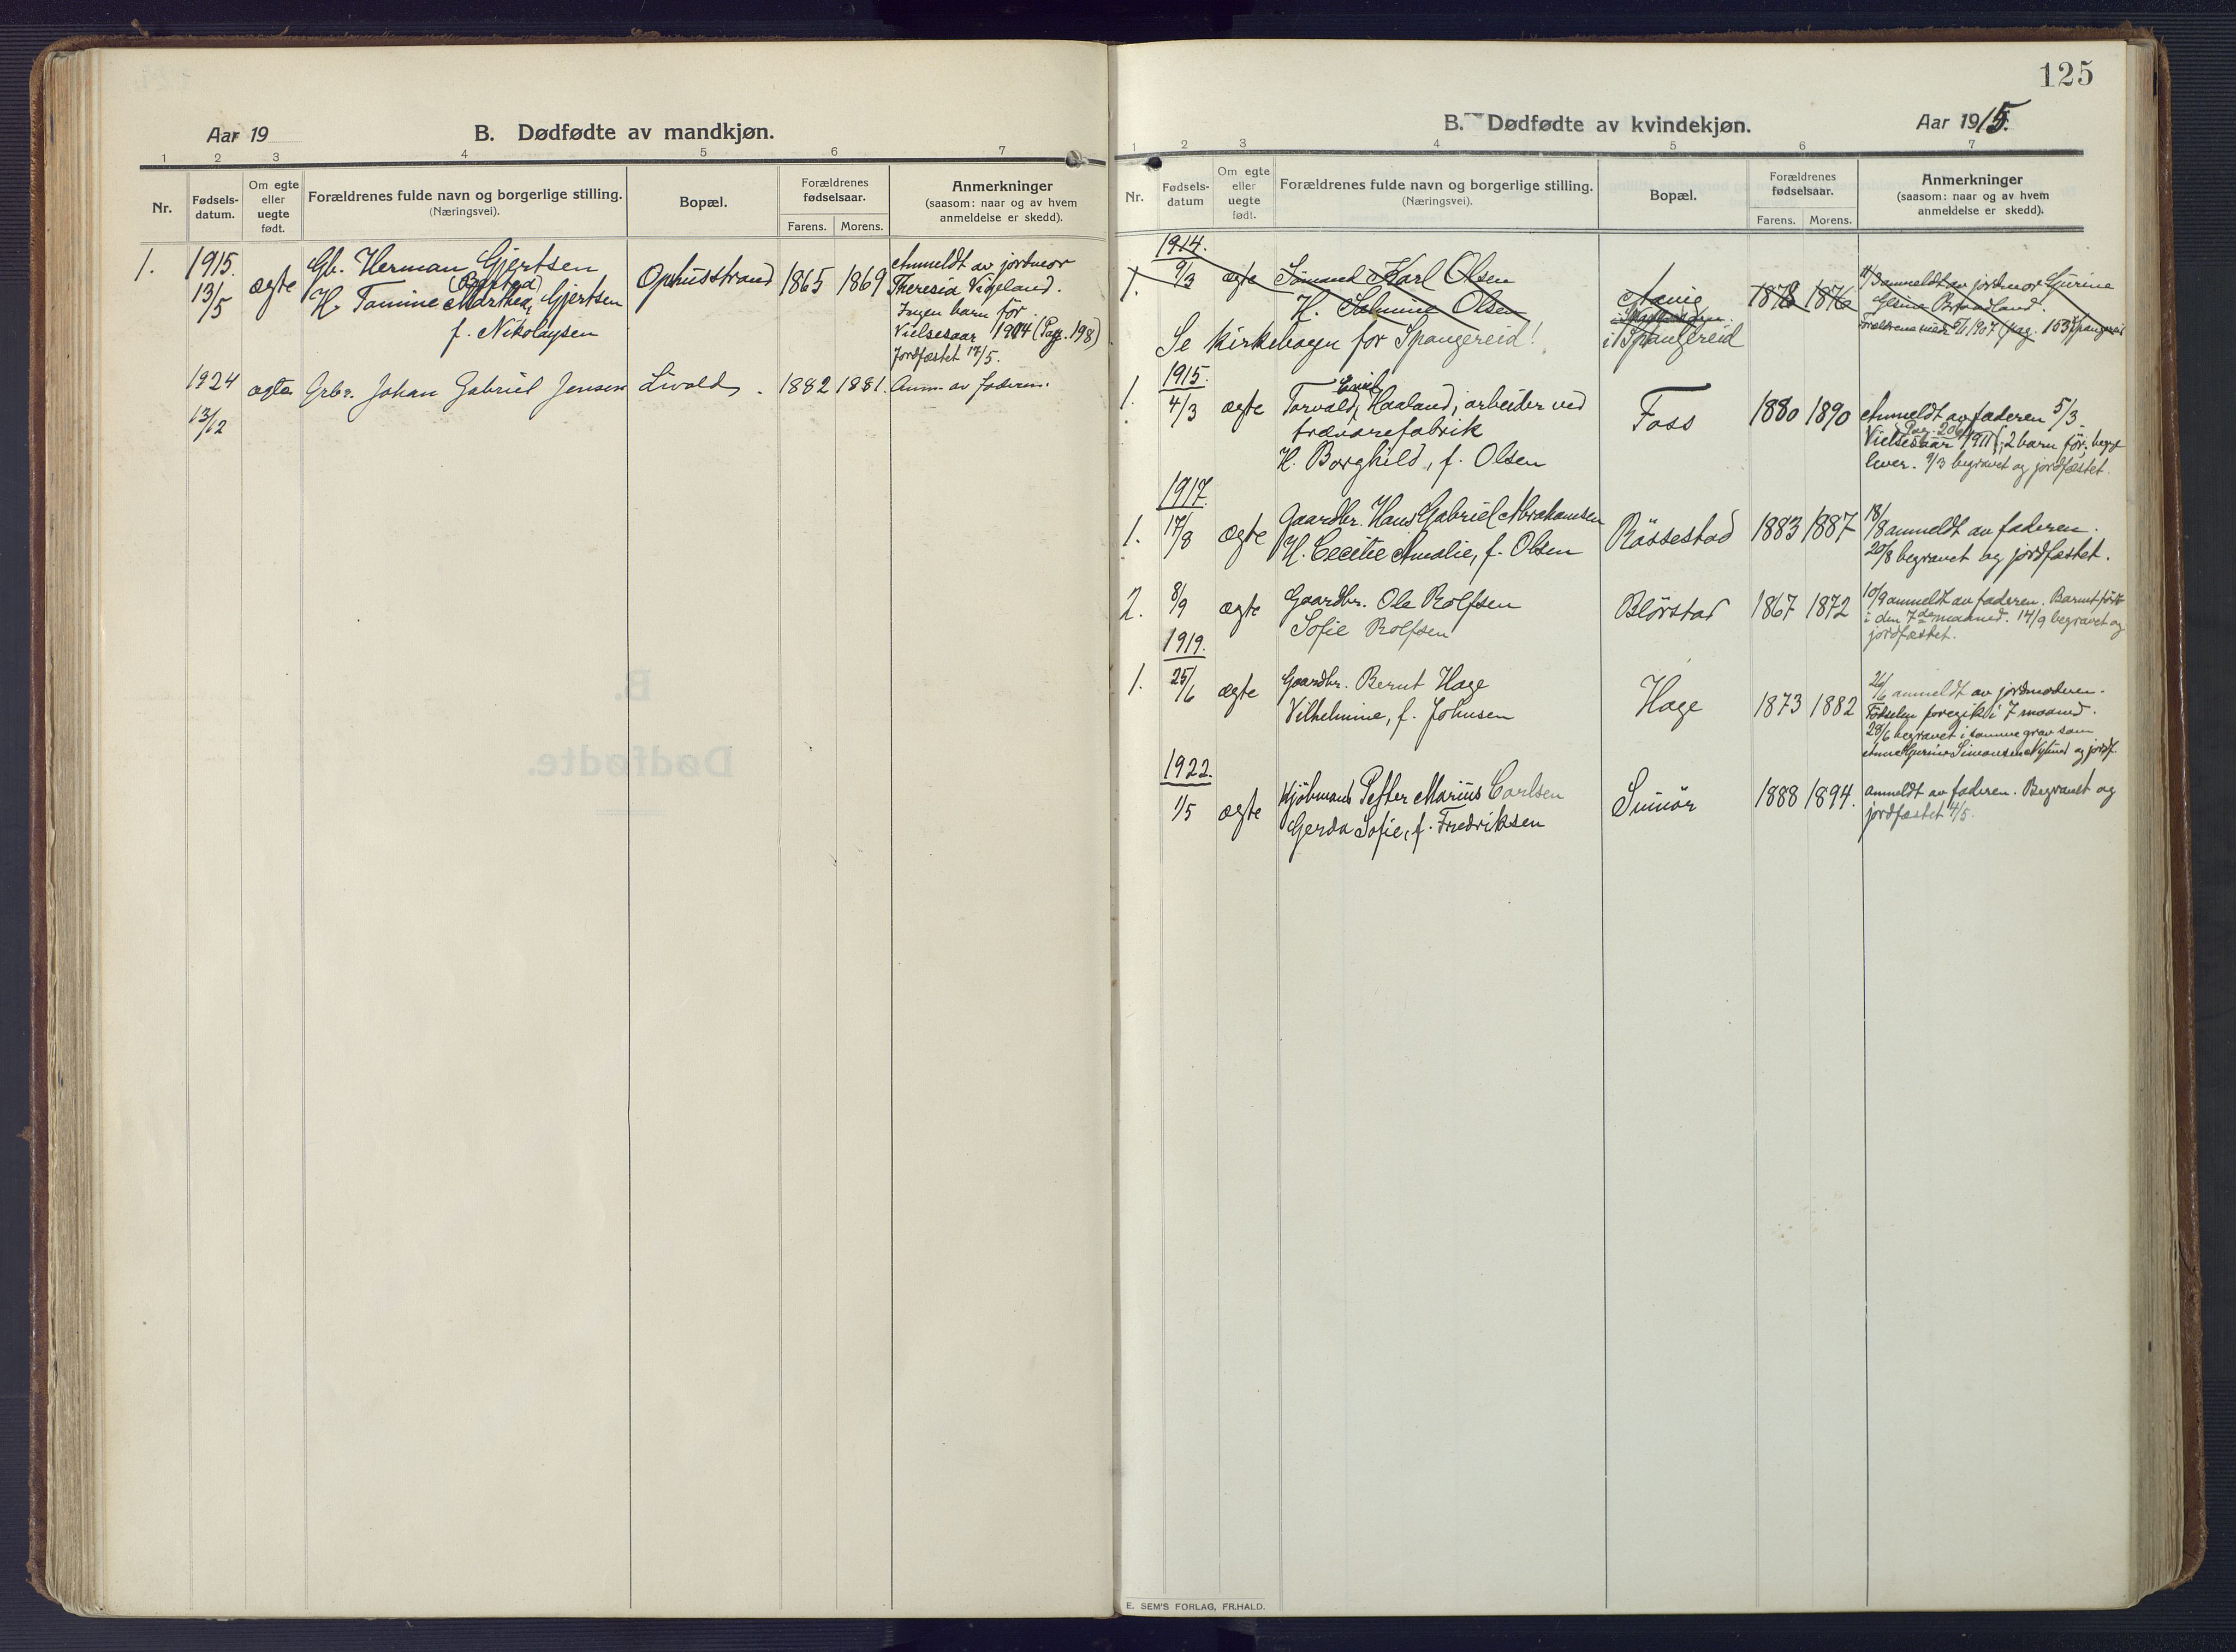 125
Aar 19
B. Dødfødte av mandkjøn.
1 2 3 4 5 6 7
Nr.
Fødsels-
datum.
Om egte
eller
uegte
født.
Forældrenes fulde navn og borgerlige stilling.
(Næringsvei).
Bopæl.
Forældrenes
fødselsaar.
Farens. Morens.
Anmerkninger
(saasom: naar og av hvem
anmeldelse er skedd).
1. 1915. 13/5 ægte
Gb. Herman Gjertsen
H. Tomine Marthea Gjertsen
f. Nikolaysen
Ophusstrand 1865 1869
Anmeldt av jordmor
Theresia Vigeland.
Ingen barn før.
Vielsesaar 1904 (Pag. 198)
Jordfæstet 17/5.
1924 13/12 ægte Grbr. Johan Gabriel Jensen Livold. 1882 1881. Anm. av faderen.
B.
Dødfødte.
B. Dødfødte av kvindekjøn.
Aar 1915.
1 2 3 4 5 6 7
Nr.
Fødsels-
datum
Om egte
eller
uegte
født.
Forældrenes fulde navn og borgerlige stilling.
(Næringsvei).
Bopæl.
Forældrenes
fødselsaar.
Farens. Morens.
Anmerkninger
(saasom: naar og av hvem
anmeldelse er skedd).
1914.
1. 9/3 ægte Sömand Karl Olsen
H. Salmine Olsen
i Spangereid
1878 1876
11/3 anmeldt av jordmor Gurine
Se kirkebogen for Spangereid!
1915.
1. 4/3 ægte
Torvald Emil Haaland, arbeider ved
trævarefabrik
H. Borghild, f. Olsen
Foss 1880 1890
Anmeldt av faderen 5/3.
Vielsesaar 1911 (Pag. 206); 2 barn før, begge
lever. 9/3 begravet og jordfæstet.
1917.
1. 17/8 ægte
Gaardbr. Hans Gabriel Abrahamsen
H. Cecilie Amalie, f. Olsen
Rössestad 1883 1887
18/8 anmeldt av faderen.
20/8 begravet og jordfæstet.
2. 8/9 ægte
Gaardbr. Ole Rolfsen
Sofie Rolfsen
Blörstad 1867 1872
10/9 anmeldt av faderen. Barnet født
i den 7de maaned. 14/9 begravet og
jordfæstet.
1919.
1. 25/6 ægte
Gaardbr. Bernt Hage
Vilhelmine, f. Johnsen
Hage 1873 1882
26/6 anmeldt av jordmoderen.
Fødselen foregik i 7 maaned.
28/6 begravet i samme grav som
1922.
1/5 ægte
Kjöbmand Petter Marius Carlsen
Gerda Sofie, f. Fredriksen
Sünör 1888 1894.
Anmeldt av faderen. Begravet og
jordfæstet 4/5.
E. SEM'S FORLAG, FR.HALD.